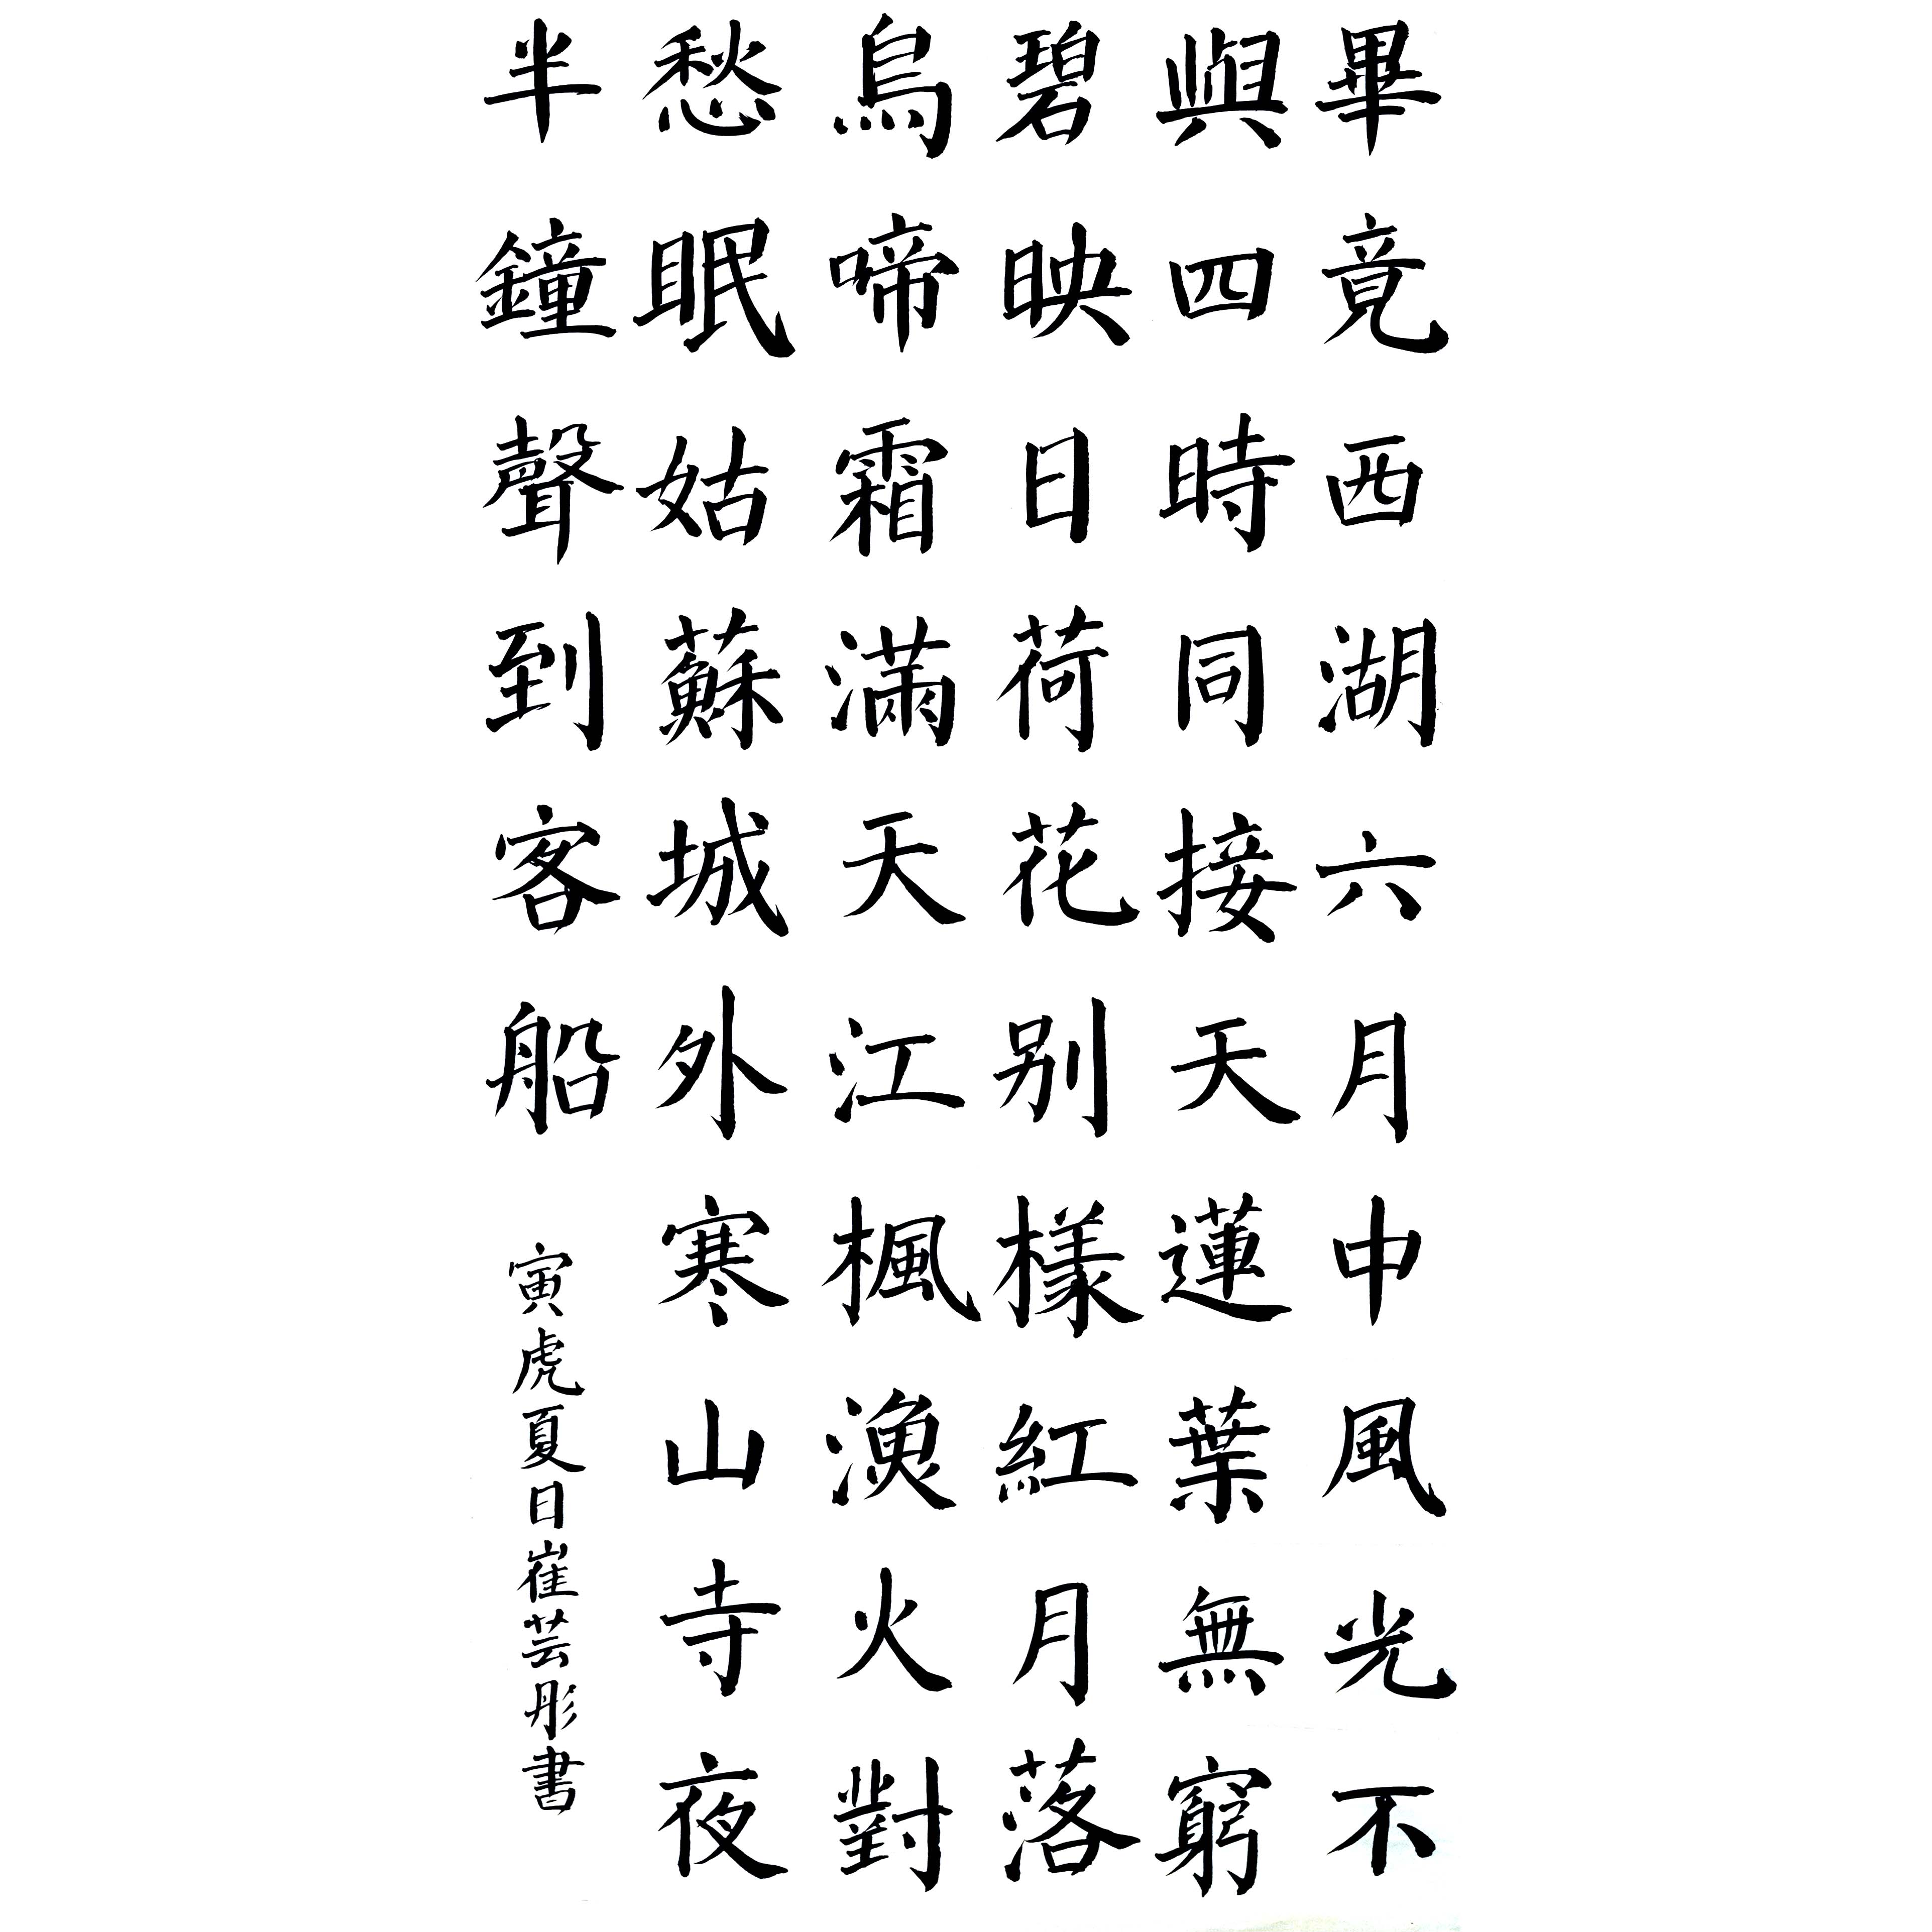 畢竟西湖六月中風光不
與四時同接天蓮葉無窮
碧映日荷花別樣紅月落
烏啼霜滿天江楓漁火對
愁眠姑蘇城外寒山寺夜
半鐘聲到客船
寅虎夏日崔芸彤書